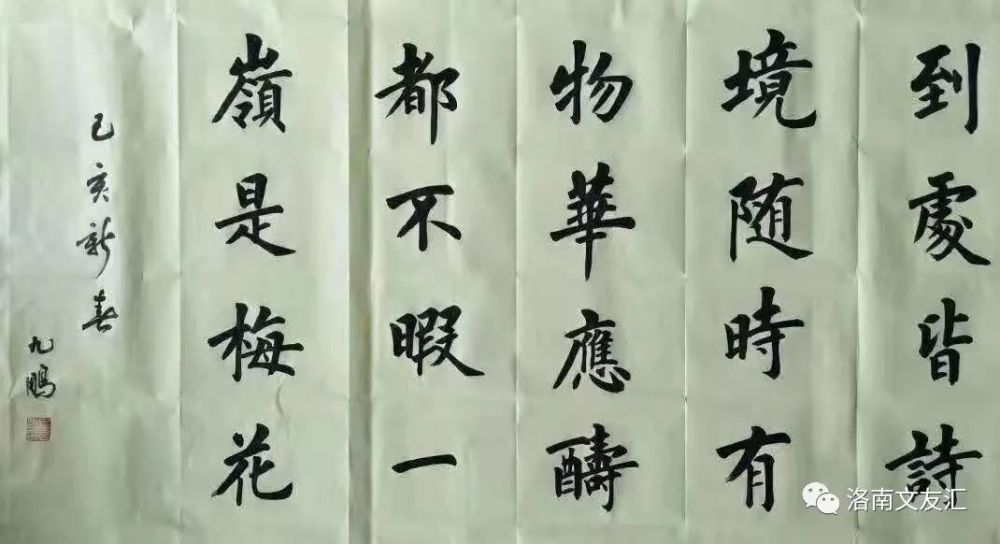 到處皆詩
境随時有
物華應醻
都不暇一
嶺是梅花
己亥新春
九鵬
洛南文友汇